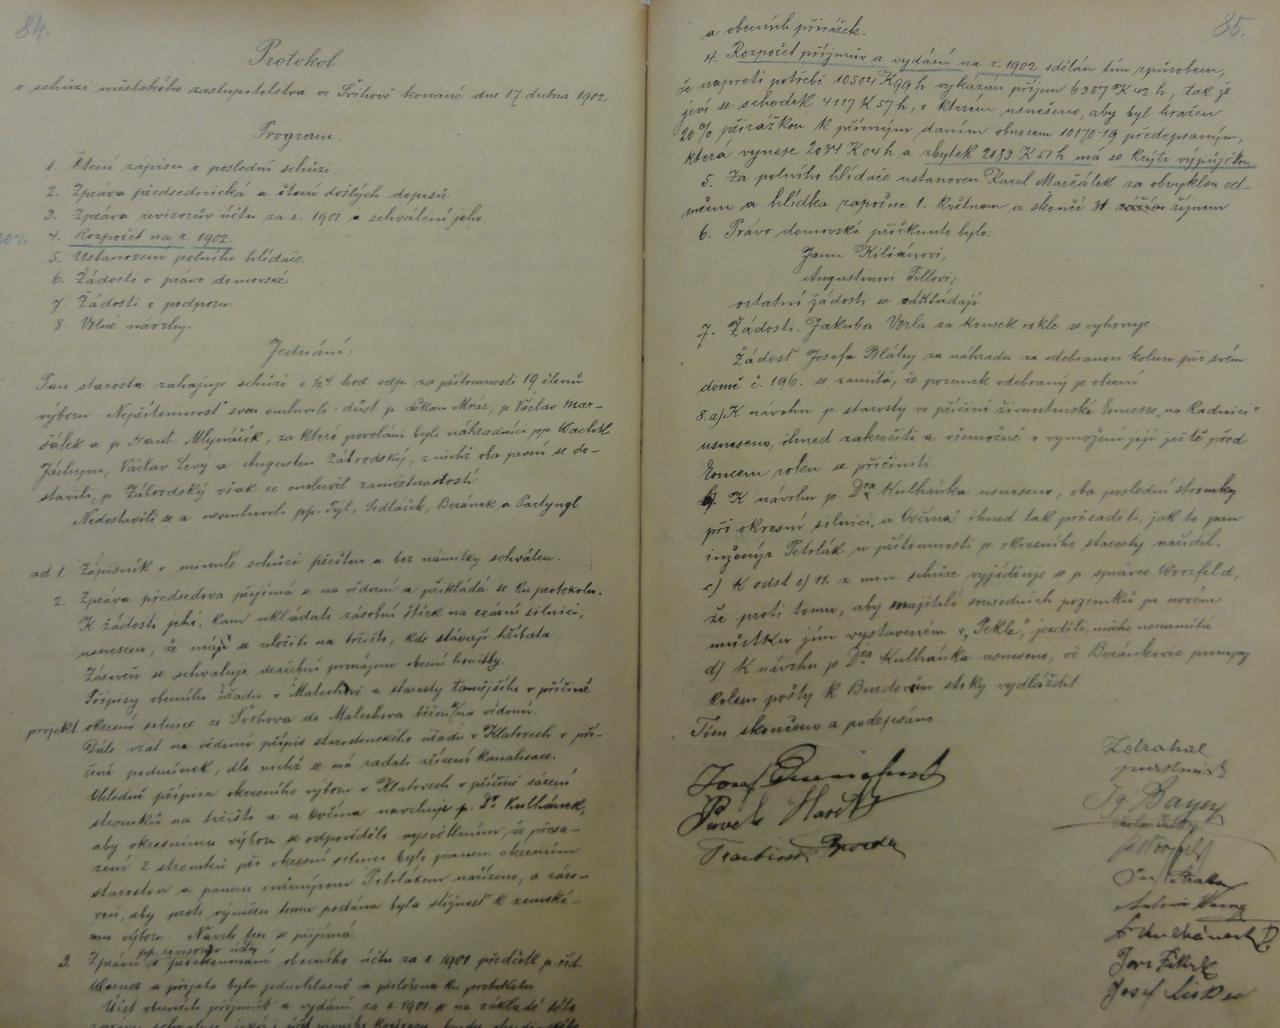 84.
Protokol
o schůzi městského zastupitelstva ve Švihově konané dne 17. dubna 1902
Program.
1. Čtení zápisu o poslední schůzi
2. Zpráva předsednická a čtení došlých dopisů
3. Zpráva revisorův účtu za r. 1901 a schválení jeho
4. Rozpočet na r. 1902.
5. Ustanovení polního hlídače
6. Žádosti o právo domovské
7. Žádosti o podporu
8. Volné návrhy.
Jednání:
Pan starosta zahajuje schůzi o hod odp. za přítomnosti 19 členů
výboru. Nepřítomnosť svou omluvili: důst. p. děkan Mráz, p. Václav Mar-
šálek a p. Frant. Mlynařík, za které povoláni byli náhradníci pp.
Jáchym, Václav Levý a Augustin Zábrodský, z nichž oba první se do-
stavili, p. Zábrodský však se omluvil zaměstnaností.
Nedostavili se a neomluvili pp. Týl, Sedláček, Beránek a Partyngl
ad 1. Zápisník o minulé schůzi přečten a bez námitky schválen.
2. Zpráva předsedova přijímá se na vědomí a přikládá se ku protokolu.
K žádosti kam ukládati zásobní štěrk na erární silnici,
usneseno, že může se uložiti na tržišti, kde stávají hříbata.
Zároveň se schvaluje pronájem obecní honitby.
Přípisy obecního úřadu v Malechově a starosty tamějšího v příčině
projekt. okresní silnice ze Švihova do Malechova na vědomí.
Dále vzat na vědomí přípis starostenského úřadu v Klatovech v pří-
čině podmínek, dle nichž se má žádati zřízení kanalisace.
Ohledně přípisu okresního výboru v Klatovech v příčině sázení
stromků na tržišti a u Ovčína navrhuje p. Dr. Kulhánek,
aby okresnímu výboru se odpovědělo vysvětlením, že přesa-
zení 2 stromků při okresní silnici bylo panem okresním
starostou a panem inženýrem Petrlákem nařízeno, a záro-
veň, aby proti výměru tomu podána byla stížnost k zemské-
mu výboru. Návrh ten se přijímá.
pp. revisorův účtu
3. Zprávu o obecního účtu za r. 1901 předčetl p. řid.
a přijata byla jednohlasně a přiložena ku protokolu
Účet obecních příjmů a vydání za r. 1901 se na základě této
85.
a obecních přirážek.
4. Rozpočet příjmův a vydání na r. 1902 sdělán tím způsobem,
že naproti potřebě 10504 K 99 h vykázán příjem 6387 K 42 h, tak že
jeví se schodek 4117 K 57 h, o kterém usnešeno, aby byl hražen
20% přirážkou k přímým daním obnosem 10170·19 předepsaným,
která vynese 2034 K 04 h a zbytek 2083 K 51 h má se krýti výpůjčkou
5. Za polního hlídače ustanoven Karel Maršálek za obvyklou od-
měnu a hlídka započne 1. květnem a skončí 31. říjnem
6. Právo domovské přiřknuto bylo:
Janu Kiliánovi,
Augustinovi Tillovi;
ostatní žádosti se odkládají
7. Žádosti Jakuba Vorla za kousek rokle se vyhovuje
Žádosť Josefa Bláhy za náhradu za odebranou kolnu při svém
domě č. 196. se zamítá, že pozemek odebraný je obecní
8. a) K návrhu p. starosty ve příčině živnostenské koncesse "na Radnici"
usneseno, ihned zakročiti a všemožně o vymožení její ještě před
koncem roku se přičiniti
b). K návrhu p. Dra Kulhánka usneseno, oba poslední stromky
při okresní silnici „u Ovčína" ihned tak přesaditi, jak to pan
inženýr Petrlák u přítomnosti p. okresního starosty nařídil.
c) K odst. c) 11. z min. schůze vyjádřuje se p. správce Worzfeld,
že proti tomu, aby majitelé sousedních pozemků po novém
můstku jím vystaveném v „Pekle", jezdili, ničeho nenamítá.
d) K návrhu p. Dra Kulhánka usneseno, od Beránkovic pumpy
kolem pošty k Burdovům stoky vydlážditi.
Tím skončeno a podepsáno
Zdrahal
purkmistr
Josef
Ig. Bayer
Pavel
Frantisek
Antonín
Josef